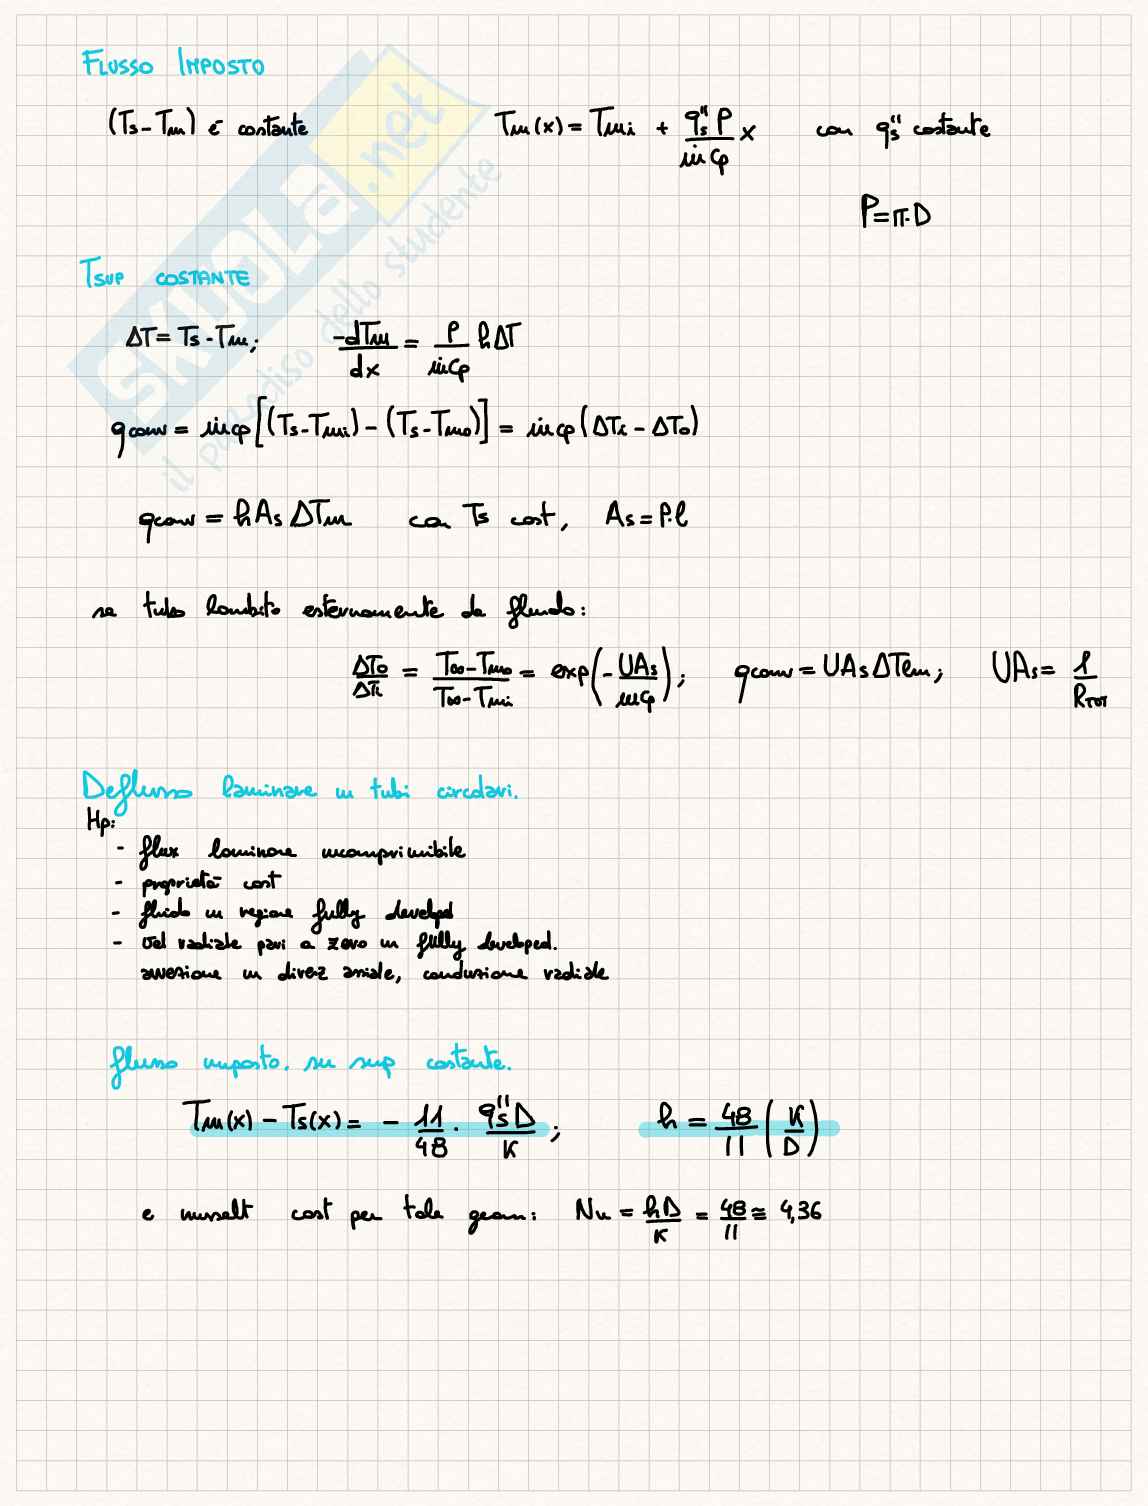 FLUSSO IMPOSTO
(Ts-Tm) è costante Tm(x) = Tmi + q"s P / ṁcp x con q"s costante
P=π·D
Tsup COSTANTE
ΔT = Ts-Tm; -dTm/dx = P/ṁcp h ΔT
qconv = ṁcp[(Ts-Tmi) - (Ts-Tmo)] = ṁcp(ΔTi - ΔTo)
qconv = h As ΔTm con Ts cost, As = P·l
se tubo lambito esternamente da fluido:
ΔTo/ΔTi = T∞-Tmo/T∞-Tmi = exp(-UAs/ṁcp); qconv = UAs ΔTlm; UAs = 1/RTOT
Deflusso laminare in tubi circolari.
Hp:
- flux laminare incomprimibile
- proprietà cost
- fluido in regione fully developed
- vel radiale pari a zero in fully developed.
avvezione in direz assiale, conduzione radiale
flusso imposto. su sup costante.
Tm(x) - Ts(x) = - 11/48 · q"s D/K; h = 48/11 (K/D)
e nusselt cost per tale geom: Nu = hD/K = 48/11 ≅ 4,36
SKUOLA.net
il paradiso dello studente